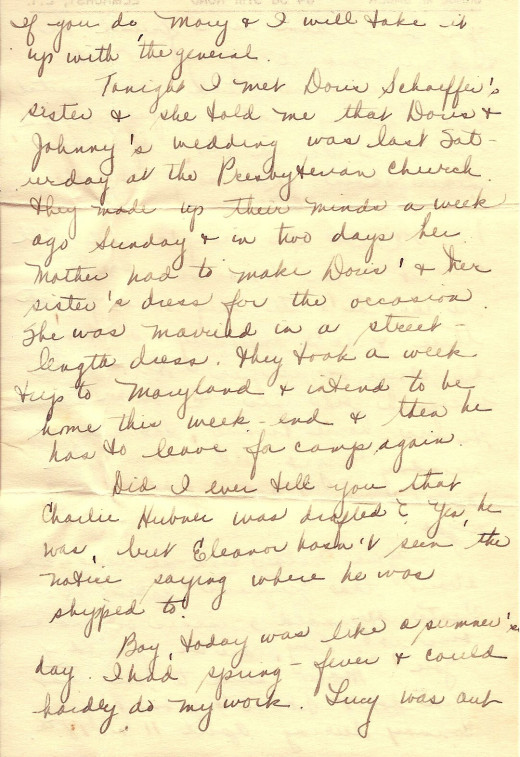 If you do, Mary & I will take it
up with the general.
Tonight I met Doris Schaeffer's
sister & she told me that Doris &
Johnny's wedding was last Sat-
urday at the Presbyterian Church.
They made up their minds a week
ago Sunday & in two days her
Mother had to make Doris' & her
sister's dress for the occasion.
She was married in a street-
length dress. They took a week
trip to Maryland & intend to be
home this week-end & then he
has to leave for camp again.
Did I ever tell you that
Charlie Hubner was drafted? Yes, he
was, but Eleanor hasn't seen the
notice saying where he was
shipped to.
Boy, today was like a summer's
day. I had spring-fever & could
hardly do my work. Lucy was out